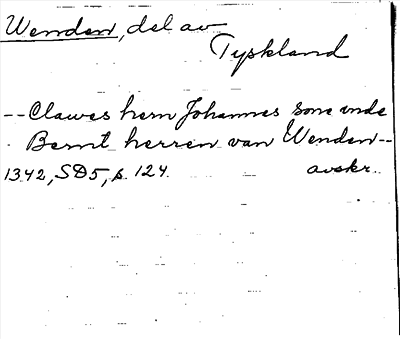 Wenden, del av
Tyskland
-- Clawes hern Johannes sone vnde
Bernt herren van Wenden --
1342, SD5, s. 124. avskr.